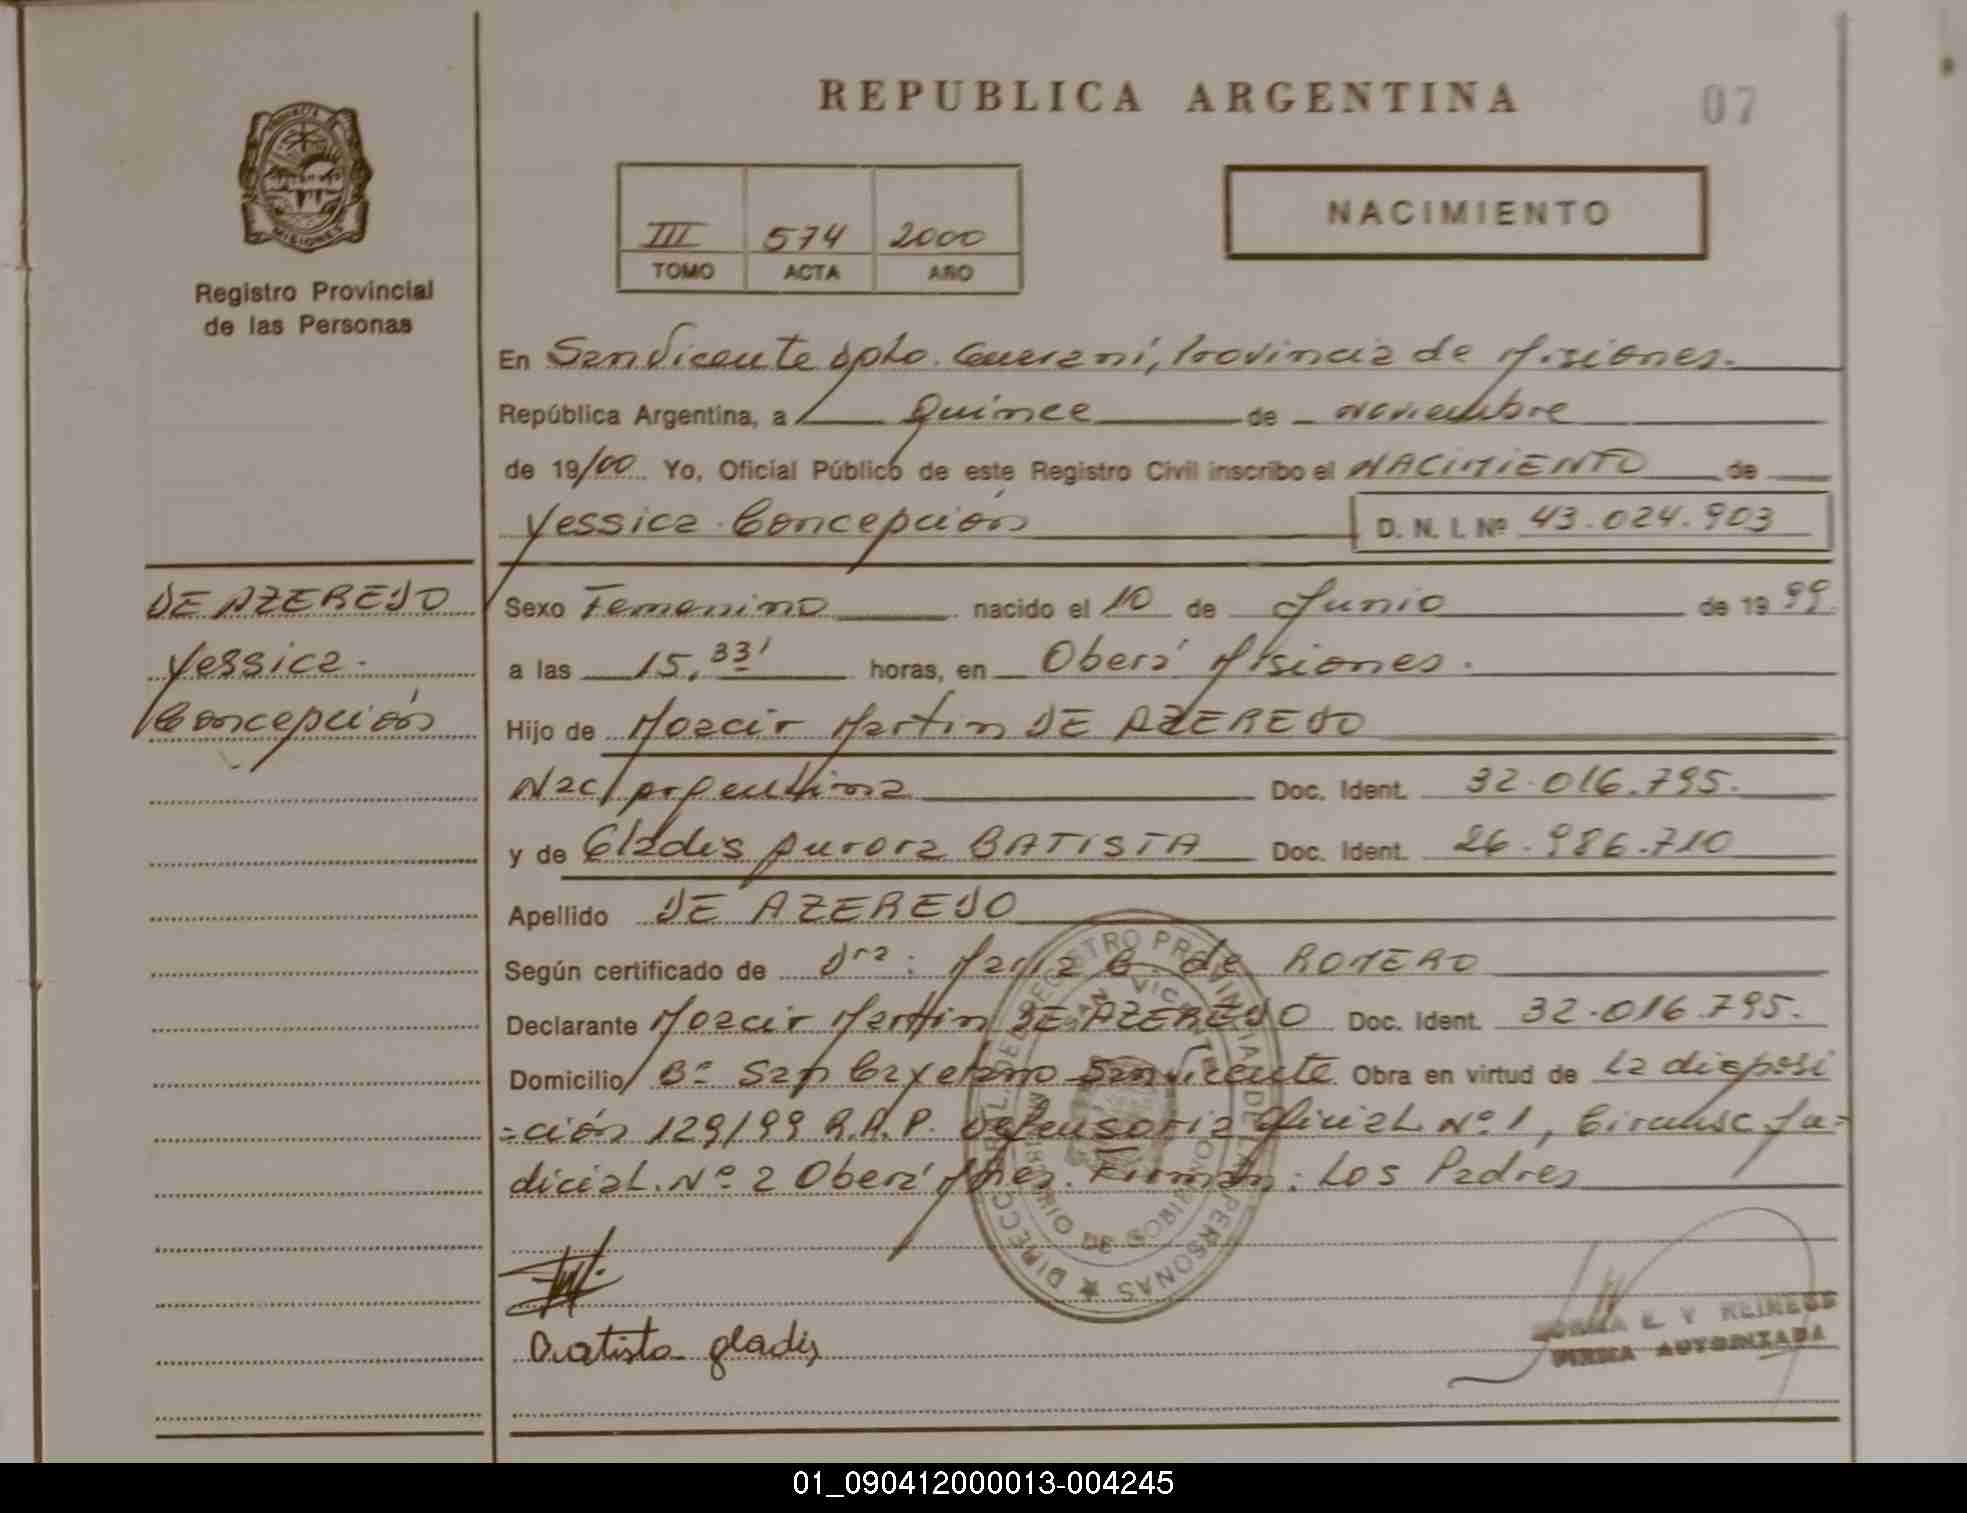 REPUBLICA ARGENTINA
07
MISIONES
Registro Provincial
de las Personas
III 574 2000
TOMO ACTA AÑO
NACIMIENTO
En San Vicente Dpto. Guaraní, Provincia de Misiones.
República Argentina, a Quince de noviembre
de 19/00 Yo, Oficial Público de este Registro Civil inscribo el NACIMIENTO de
Yessica Concepción D. N. I. Nº 43.024.903
DE AZEREDO
Yessica
Concepción
Sexo Femenino nacido el 10 de Junio de 19 99
a las 15,33' horas, en Oberá Misiones.
Hijo de Moacir Martin DE AZEREDO
Nac/argentina Doc. Ident. 32.016.795.
y de Gladis Aurora BATISTA Doc. Ident. 26.986.710
Apellido DE AZEREDO
Según certificado de Dra: Maria de ROMERO
Declarante Moacir Martin DE AZEREDO Doc. Ident. 32.016.795.
Domicilio Bº San Cayetano San Vicente Obra en virtud de la disposi
=ción 129/99 R.A.P. Defensoria Oficial Nº 1, Circunsc Ju-
dicial Nº 2 Oberá Mnes. Firman: Los Padres
Batista gladis
E. V REINESS
FIRMA AUTORIZADA
01_090412000013-004245